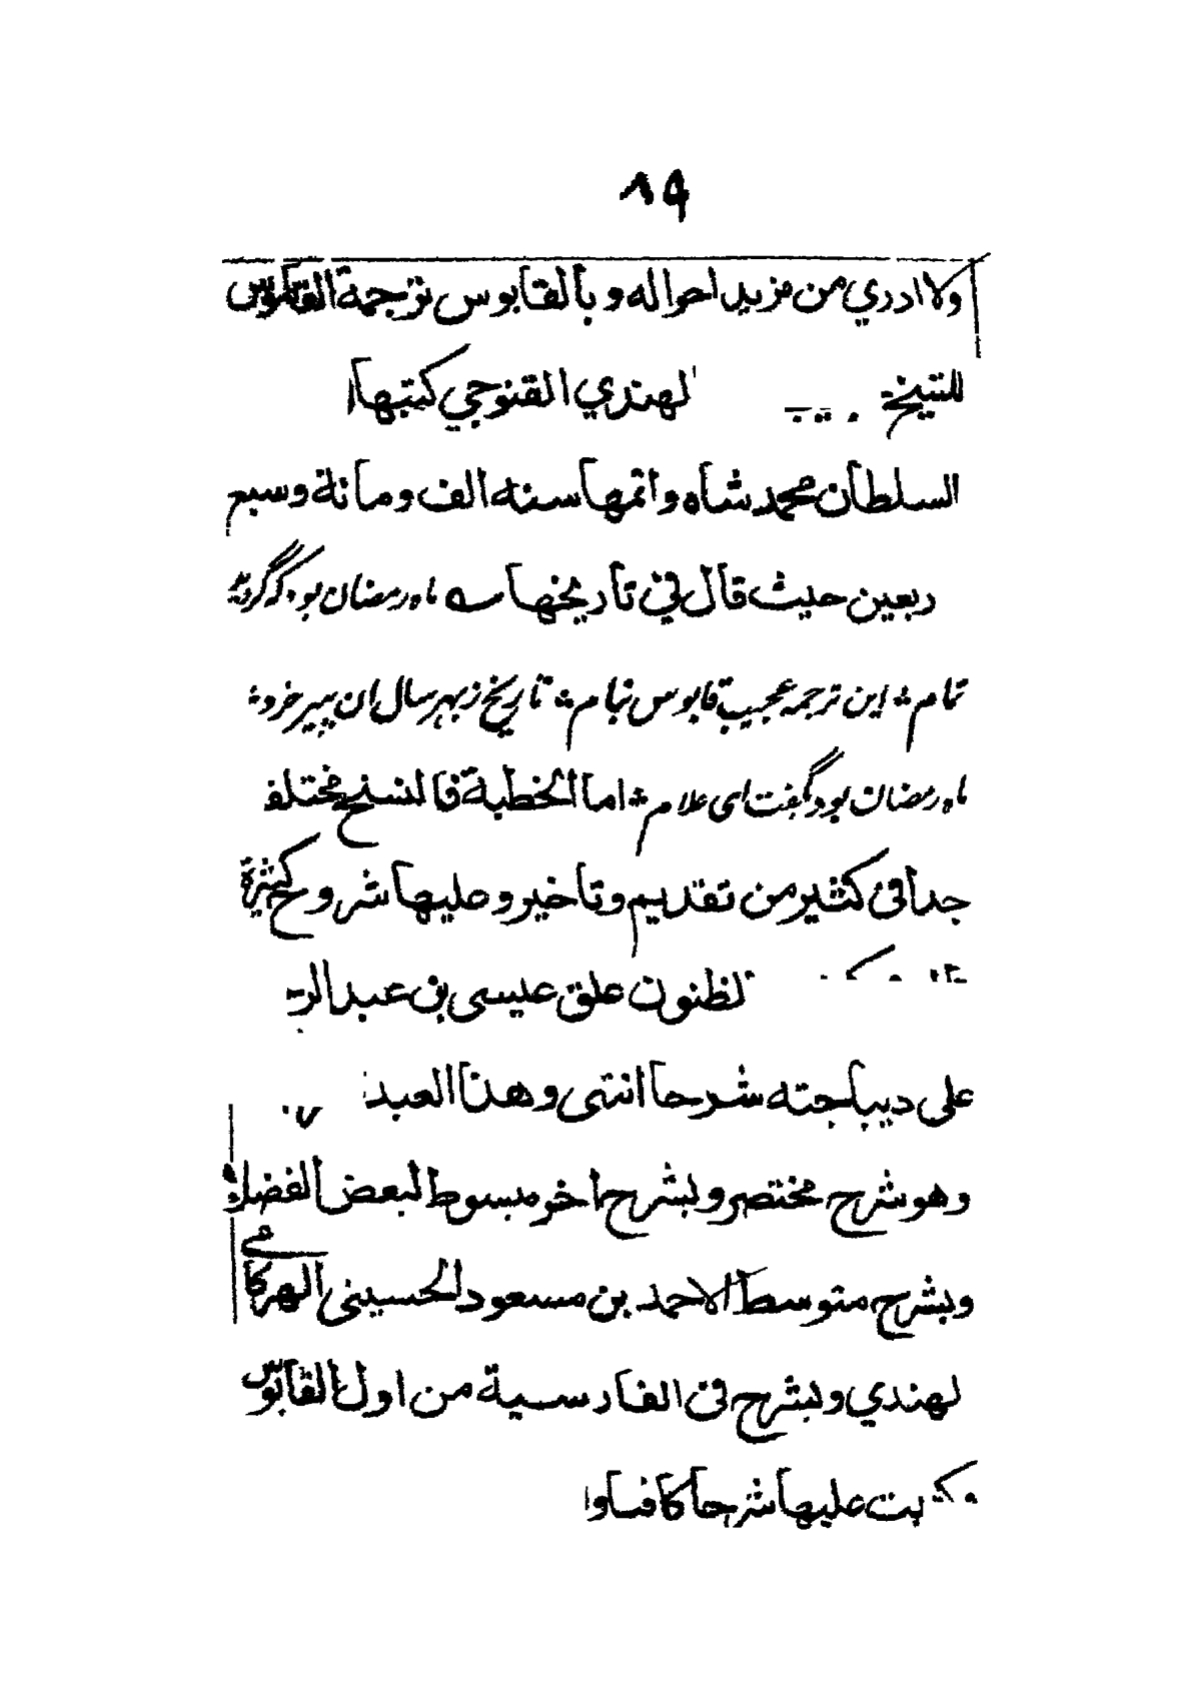 ٨٩
ولا ادري من مزيد احواله و بالقابوس ترجمة القاموس
للشيخ لهندي القنوجي كتبها
السلطان محمد شاه واتمها سنة الف ومائة وسبع
ربعين حيث قال في تاريخها ماه رمضان بود كه گرديد
تمام * اين ترجمه عجيب قابوس بنام * تاريخ ز بهر سال ان پير خرد *
ماه رمضان بود بگفت اى علام * اما الخطبة فالنسخ مختلفة
جدا في كثير من تقديم وتاخير وعليها شروح كثيرة
لظنون علق عيسى بن عبد الر
على ديباجته شرحا انتهى وهذا العبد
وهو شرح مختصر وبشرح اخر مبسوط لبعض الفضلاء
وبشرح متوسط لاحمد بن مسعود الحسيني الهركامي
لهندي وبشرح في الفارسية من اول القابوس
كتبت عليها شرحا كافيا و